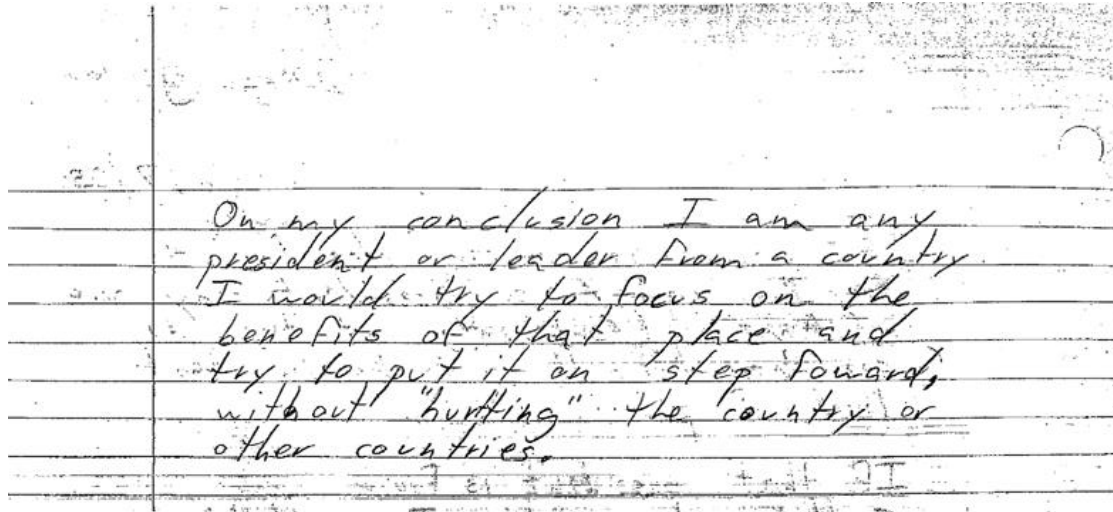 On my conclusion I am any
president or leader from a country
I would try to focus on the
benefits of that place and
try to put it on step foward,
without "hurtting" the country or
other countries.